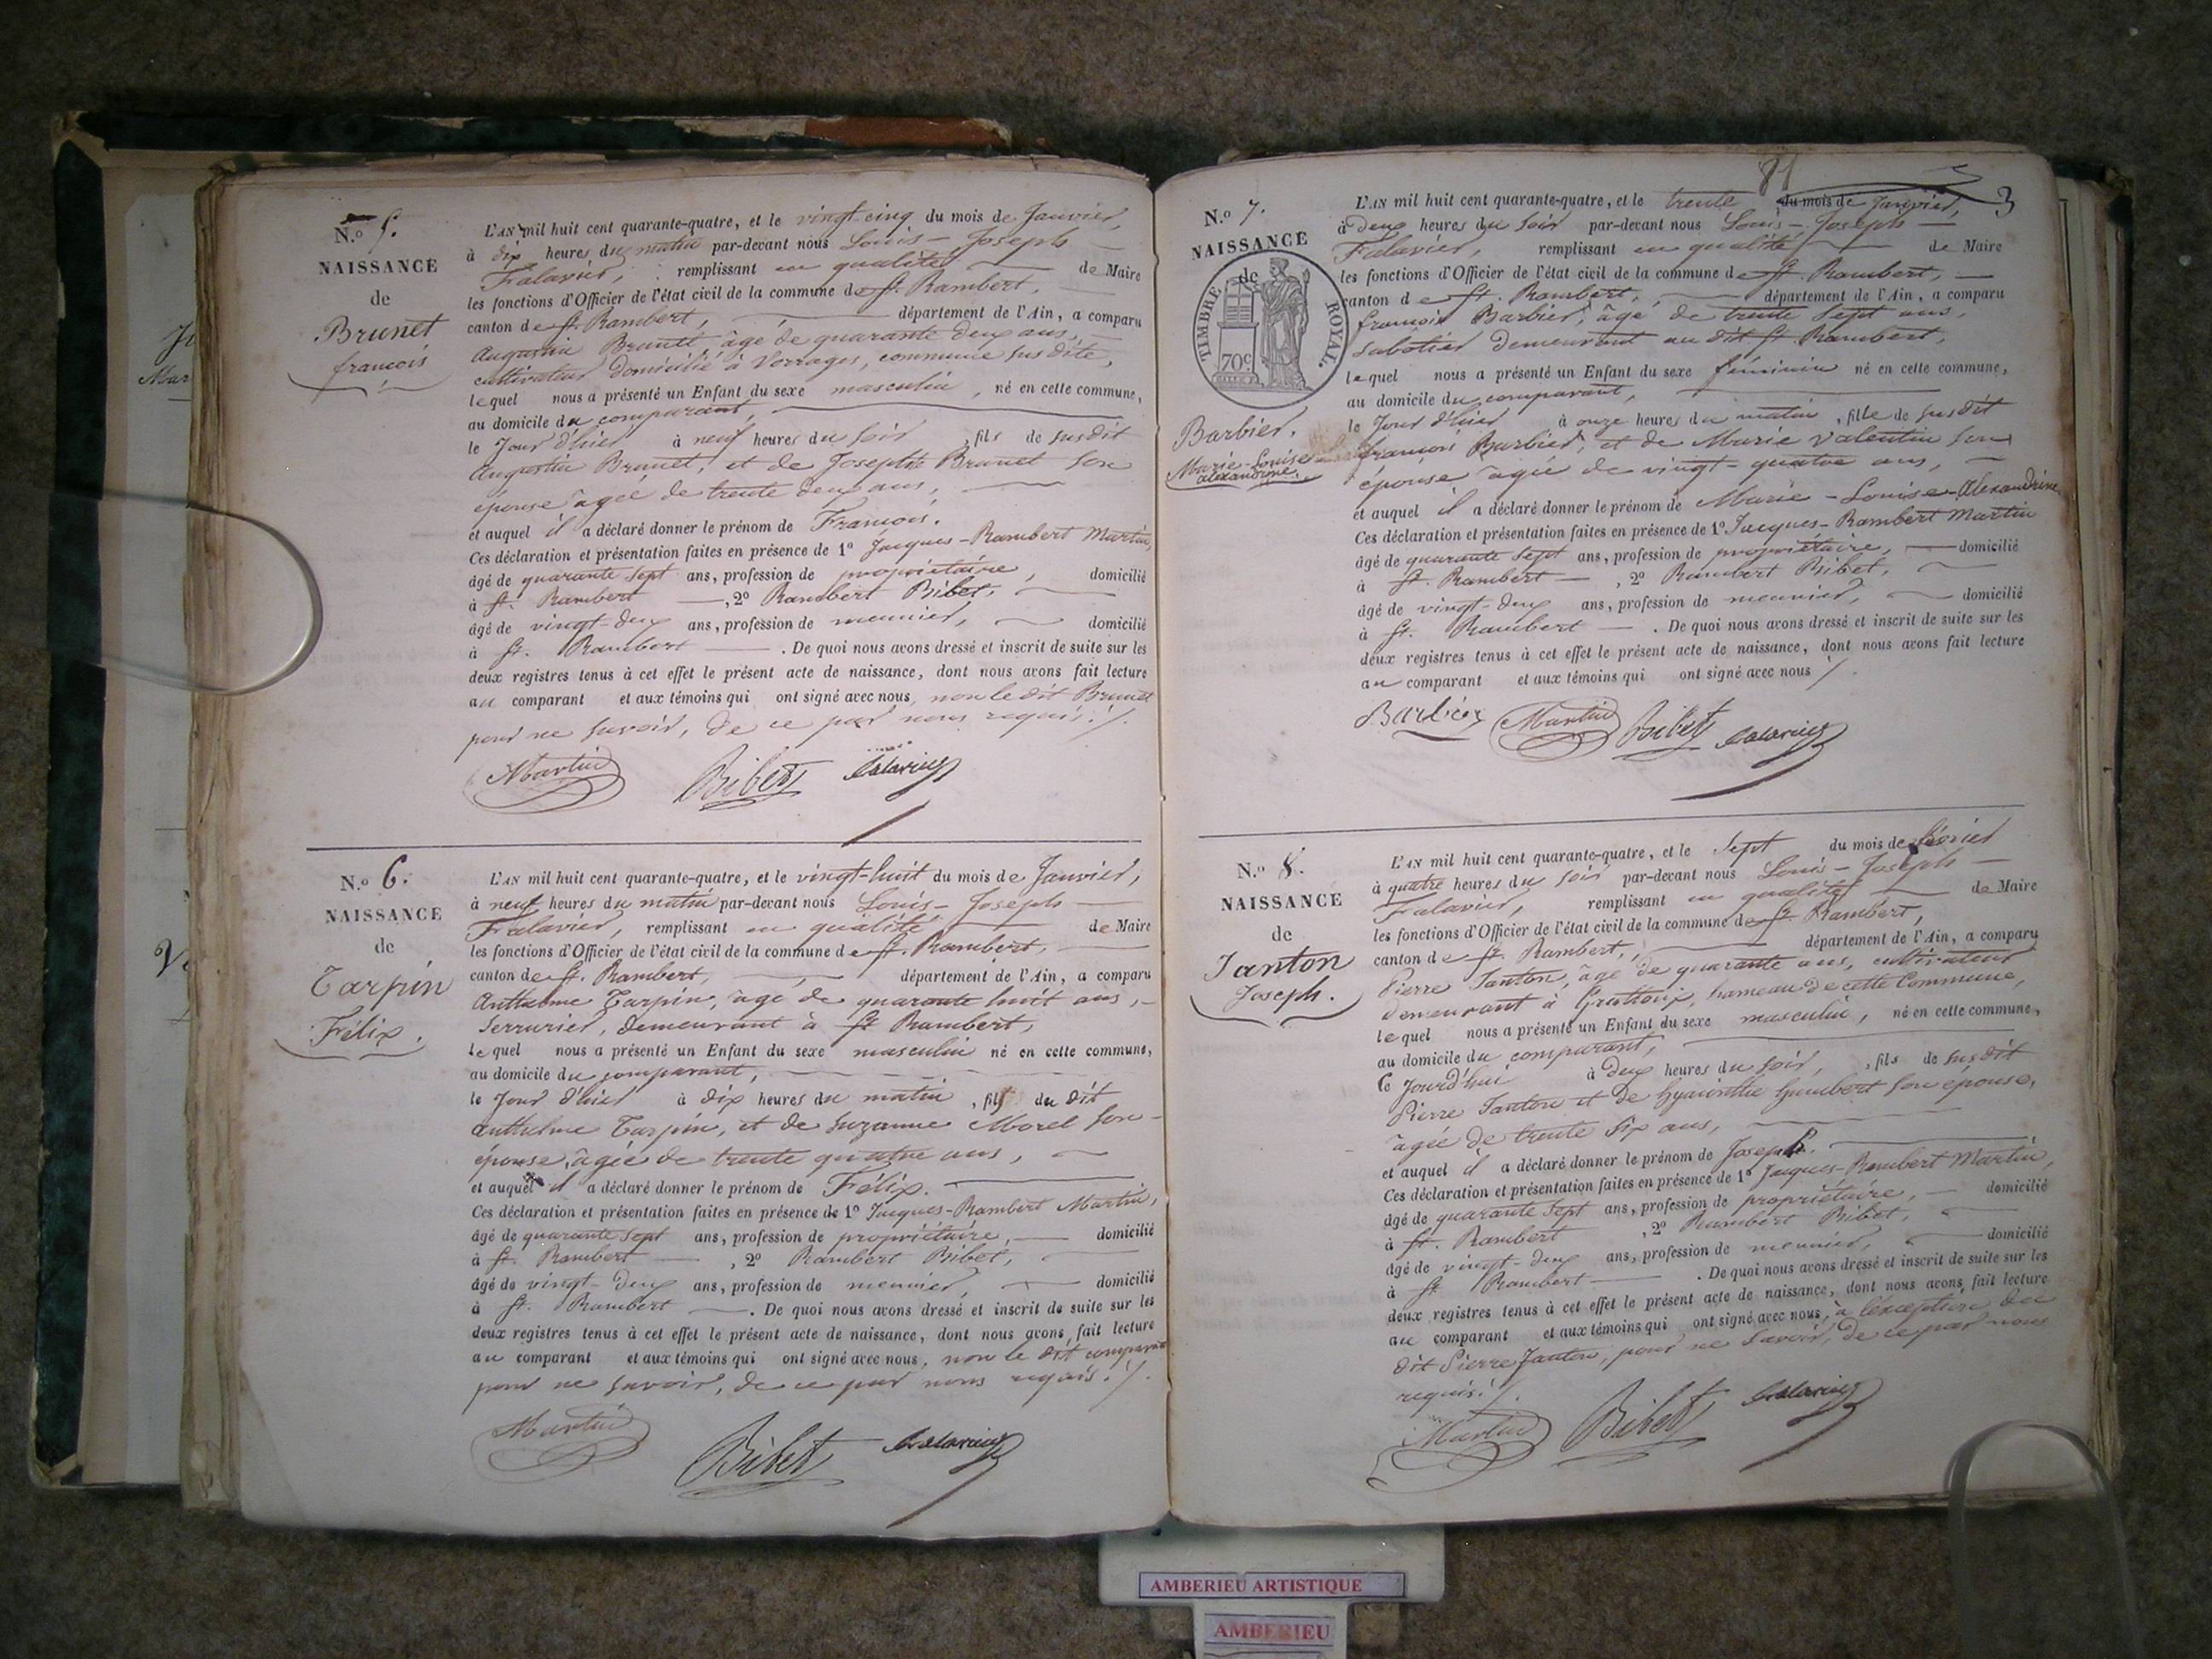 N.º 5.
NAISSANCE
de
Brunet
françois
L'AN mil huit cent quarante-quatre, et le vingt cinq du mois de Janvier,
à dix heures du matin par-devant nous Louis - Joseph
Falavier, remplissant en qualité de Maire
les fonctions d'Officier de l'état civil de la commune de St. Rambert,
canton de St. Rambert, département de l'Ain, a comparu
Augustin Brunet âgé de quarante deux ans,
cultivateur domicilié à Vorrages, commune susdite,
lequel nous a présenté un Enfant du sexe masculin, né en cette commune,
au domicile du comparant,
le Jour d'hier à neuf heures du soir, fils de susdit
Augustin Brunet, et de Josephte Brunet son
épouse âgée de trente deux ans,
et auquel il a déclaré donner le prénom de François.
Ces déclaration et présentation faites en présence de 1º Jacques-Rambert Martin,
âgé de quarante sept ans, profession de propriétaire, domicilié
à St. Rambert, 2º Rambert Bibet,
âgé de vingt-deux ans, profession de meunier, domicilié
à St. Rambert. De quoi nous avons dressé et inscrit de suite sur les
deux registres tenus à cet effet le présent acte de naissance, dont nous avons fait lecture
au comparant et aux témoins qui ont signé avec nous, non le dit Brunet
pour ne savoir, de ce par nous requis ./.
Martin Bibet Falavier
N.º 6.
NAISSANCE
de
Tarpin
Félix.
L'AN mil huit cent quarante-quatre, et le vingt-huit du mois de Janvier,
à neuf heures du matin par-devant nous Louis - Joseph
Falavier, remplissant en qualité de Maire
les fonctions d'Officier de l'état civil de la commune de St. Rambert,
canton de St. Rambert, département de l'Ain, a comparu
Anthelme Tarpin, âgé de quarante huit ans,
Serrurier, demeurant à St Rambert,
lequel nous a présenté un Enfant du sexe masculin né en cette commune,
au domicile du comparant,
le Jour d'hier à dix heures du matin, fils du dit
Anthelme Tarpin, et de Suzanne Morel son
épouse, âgée de trente quatre ans,
et auquel il a déclaré donner le prénom de Félix.
Ces déclaration et présentation faites en présence de 1º Jacques-Rambert Martin,
âgé de quarante sept ans, profession de propriétaire, domicilié
à St. Rambert, 2º Rambert Bibet,
âgé de vingt-deux ans, profession de meunier, domicilié
à St. Rambert. De quoi nous avons dressé et inscrit de suite sur les
deux registres tenus à cet effet le présent acte de naissance, dont nous avons fait lecture
au comparant et aux témoins qui ont signé avec nous, non le dit comparant
pour ne savoir, de ce par nous requis ./.
Martin Bibet Falavier
81
3
N.º 7.
NAISSANCE
de
TIMBRE ROYAL.
70c
Barbier.
Marie-Louise
alexandrine.
L'AN mil huit cent quarante-quatre, et le trente du mois de Janvier,
à deux heures du soir par-devant nous Louis - Joseph
Falavier, remplissant en qualité de Maire
les fonctions d'Officier de l'état civil de la commune de St. Rambert,
canton de St. Rambert, département de l'Ain, a comparu
françois Barbier, âgé de trente sept ans,
sabotier demeurant au dit St. Rambert,
lequel nous a présenté un Enfant du sexe féminin né en cette commune,
au domicile du comparant,
le Jour d'hier à onze heures du matin, fille de susdit
françois Barbier, et de Marie Valentin son
épouse âgée de vingt-quatre ans,
et auquel il a déclaré donner le prénom de Marie-Louise-Alexandrine
Ces déclaration et présentation faites en présence de 1º Jacques-Rambert Martin
âgé de quarante sept ans, profession de propriétaire, domicilié
à St. Rambert, 2º Rambert Bibet,
âgé de vingt-deux ans, profession de meunier, domicilié
à St. Rambert. De quoi nous avons dressé et inscrit de suite sur les
deux registres tenus à cet effet le présent acte de naissance, dont nous avons fait lecture
au comparant et aux témoins qui ont signé avec nous ./.
Barbier Martin Bibet Falavier
N.º 8.
NAISSANCE
de
Janton
Joseph.
L'AN mil huit cent quarante-quatre, et le Sept du mois de février
à quatre heures du soir par-devant nous Louis - Joseph
Falavier, remplissant en qualité de Maire
les fonctions d'Officier de l'état civil de la commune de St. Rambert,
canton de St. Rambert, département de l'Ain, a comparu
Pierre Janton, âgé de quarante ans, cultivateur
demeurant à Grattoux, hameau de cette Commune,
lequel nous a présenté un Enfant du sexe masculin, né en cette commune,
au domicile du comparant,
Ce Jourd'hui à deux heures du soir, fils de susdit
Pierre Janton et de hyacinthe humbert son épouse,
âgée de trente six ans,
et auquel il a déclaré donner le prénom de Joseph.
Ces déclaration et présentation faites en présence de 1º Jacques-Rambert Martin,
âgé de quarante sept ans, profession de propriétaire, domicilié
à St. Rambert, 2º Rambert Bibet,
âgé de vingt-deux ans, profession de meunier, domicilié
à St Rambert. De quoi nous avons dressé et inscrit de suite sur les
deux registres tenus à cet effet le présent acte de naissance, dont nous avons fait lecture
au comparant et aux témoins qui ont signé avec nous, à l'exception du
dit Pierre Janton, pour ne savoir, de ce par nous
requis ./.
Martin Bibet Falavier
AMBERIEU ARTISTIQUE
AMBERIEU